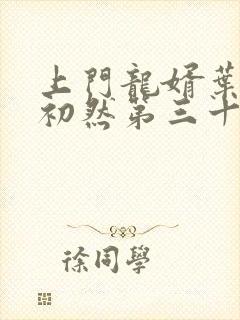 上門龍婿葉
初然第三十
徐同學